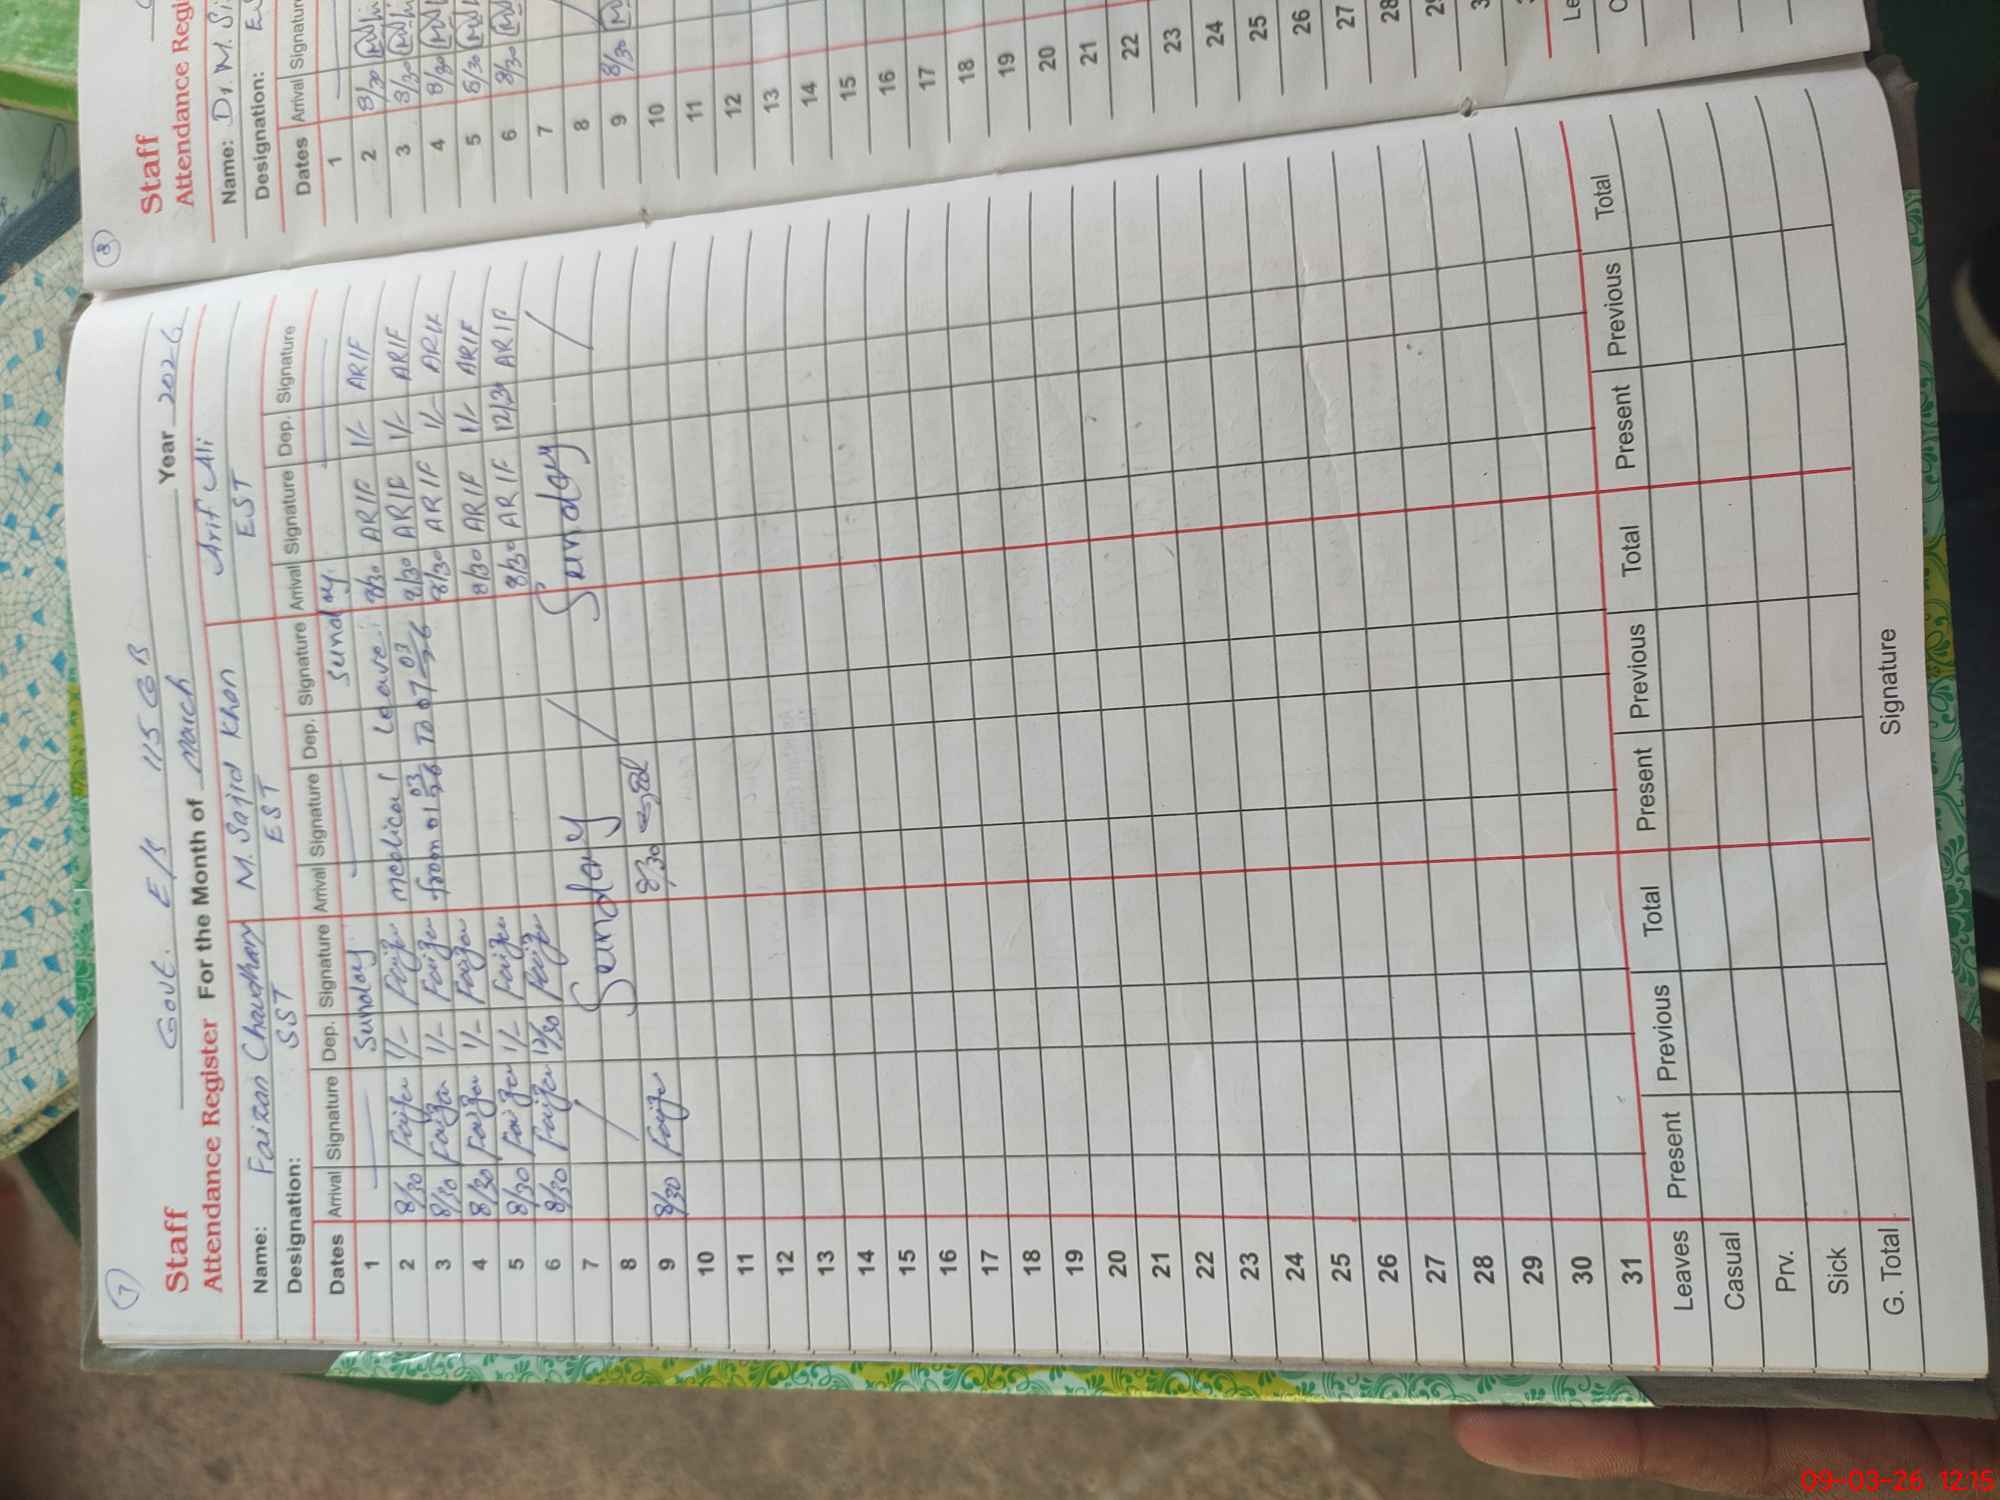 7
Staff Govt. E/S 115 GB
Attendance Register For the Month of March Year 2026
Name: Faizan Chaudhary M. Sajid Khan Arif Ali
Designation: SST EST EST
Dates Arrival Signature Dep. Signature Arrival Signature Dep. Signature Arrival Signature Dep. Signature
1 Sunday Sunday
2 8/30 Faizan 1/- Faizan medical Leave 8/30 ARIF 1/- ARIF
3 8/30 Faizan 1/- Faizan from 01 03 26 To 07 03 26 8/30 ARIF 1/- ARIF
4 8/30 Faizan 1/- Faizan 8/30 ARIF 1/- ARIF
5 8/30 Faizan 1/- Faizan 8/30 ARIF 1/- ARIF
6 8/30 Faizan 12/30 Faizan 8/30 ARIF 12/30 ARIF
7
8 Sunday Sunday
9 8/30 Faizan 8/30
10
11
12
13
14
15
16
17
18
19
20
21
22
23
24
25
26
27
28
29
30
31
Leaves Present Previous Total Present Previous Total Present Previous Total
Casual
Prv.
Sick
G. Total
Signature
8
Staff
Attendance Regi
Name: Dr. M. Si
Designation:
Dates Arrival Signature
1
2 8/30
3 8/30
4 8/30
5 8/30
6 8/30
7
8
9 8/30
10
11
12
13
14
15
16
17
18
19
20
21
22
23
24
25
26
27
28
09-03-26 12:15